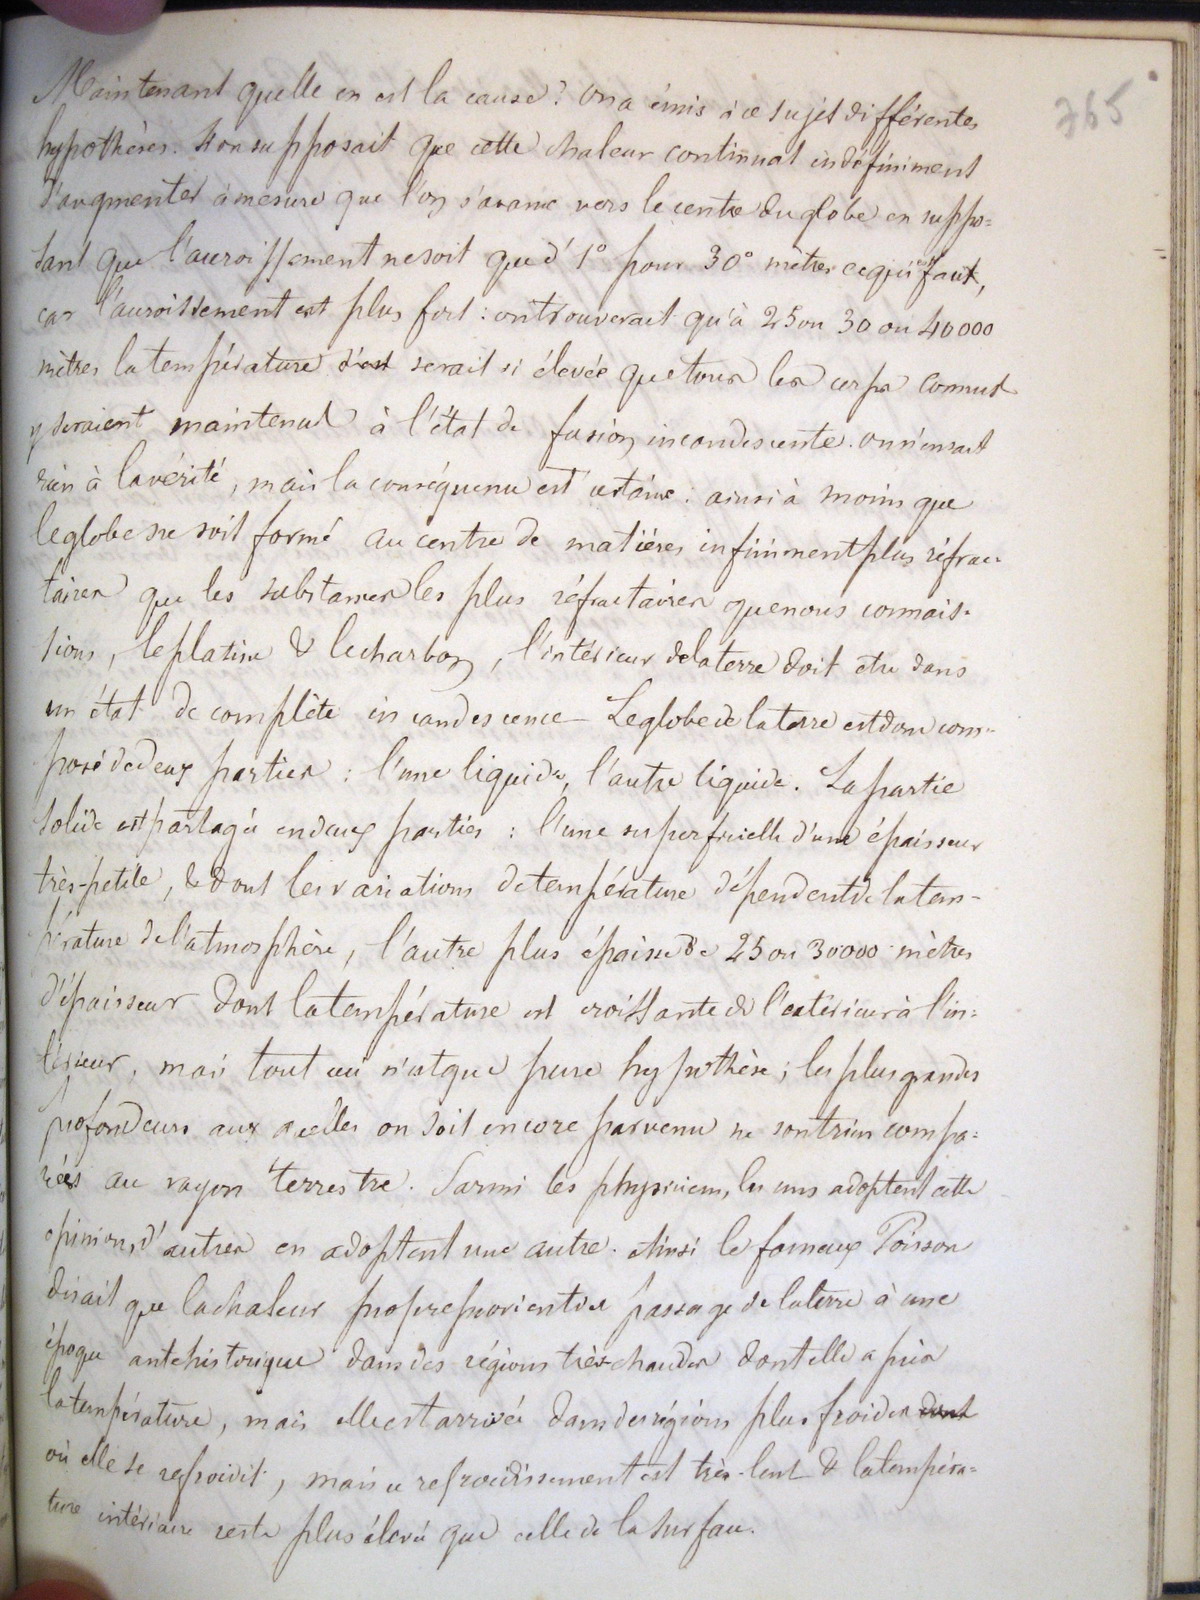 365
Maintenant quelle en est la cause? On a émis à ce sujet différentes
hypothèses. Si on supposait que cette chaleur continuat indéfiniment
d'augmenter à mesure que l'on s'avance vers le centre du globe en suppo=
sant que l'accroissement ne soit que d' 1° pour 30° mètres ce qui est faux,
car l'accroissement est plus fort : on trouverait qu'à 25 ou 30 ou 40000
mètres la température serait si élevée que tous les corps connus
y seraient maintenus à l'état de fusion incandescente. on n'en sait
rien à la vérité, mais la conséquence est certaine : ainsi à moins que
le globe ne soit formé au centre de matières infiniment plus réfrac
taires que les substances les plus réfractaires que nous connais-
sions, le platine & le charbon, l'intérieur de la terre doit etre dans
un état de complète incandescence – Le globe de la terre est donc com-
posé de deux parties : l'une liquide, l'autre liquide. La partie
solide est partagée en deux parties : l'une superficielle d'une épaisseur
très-petite, & dont les variations de température dépendent de la tem-
pérature de l'atmosphère, l'autre plus épaisse de 25 ou 30000 mètres
d'épaisseur dont la température est croissante de l'extérieur à l'in=
térieur, mais tout ceci n'est que pure hypothèse ; les plus grandes
profondeurs aux quelles on soit encore parvenu ne sont rien compa=
rées au rayon terrestre. Parmi les physiciens, les uns adoptent cette
opinion, d'autres en adoptent une autre. Ainsi le fameux Poisson
disait que la chaleur propre provient du passage de la terre à une
époque antehistorique dans des régions très-chaudes dont elle a pris
la température, mais elle est arrivée dans des régions plus froides dont
où elle se refroidit, mais ce refroidissement est très-lent & la tempéra=
ture intérieure reste plus élevée que celle de la surface.